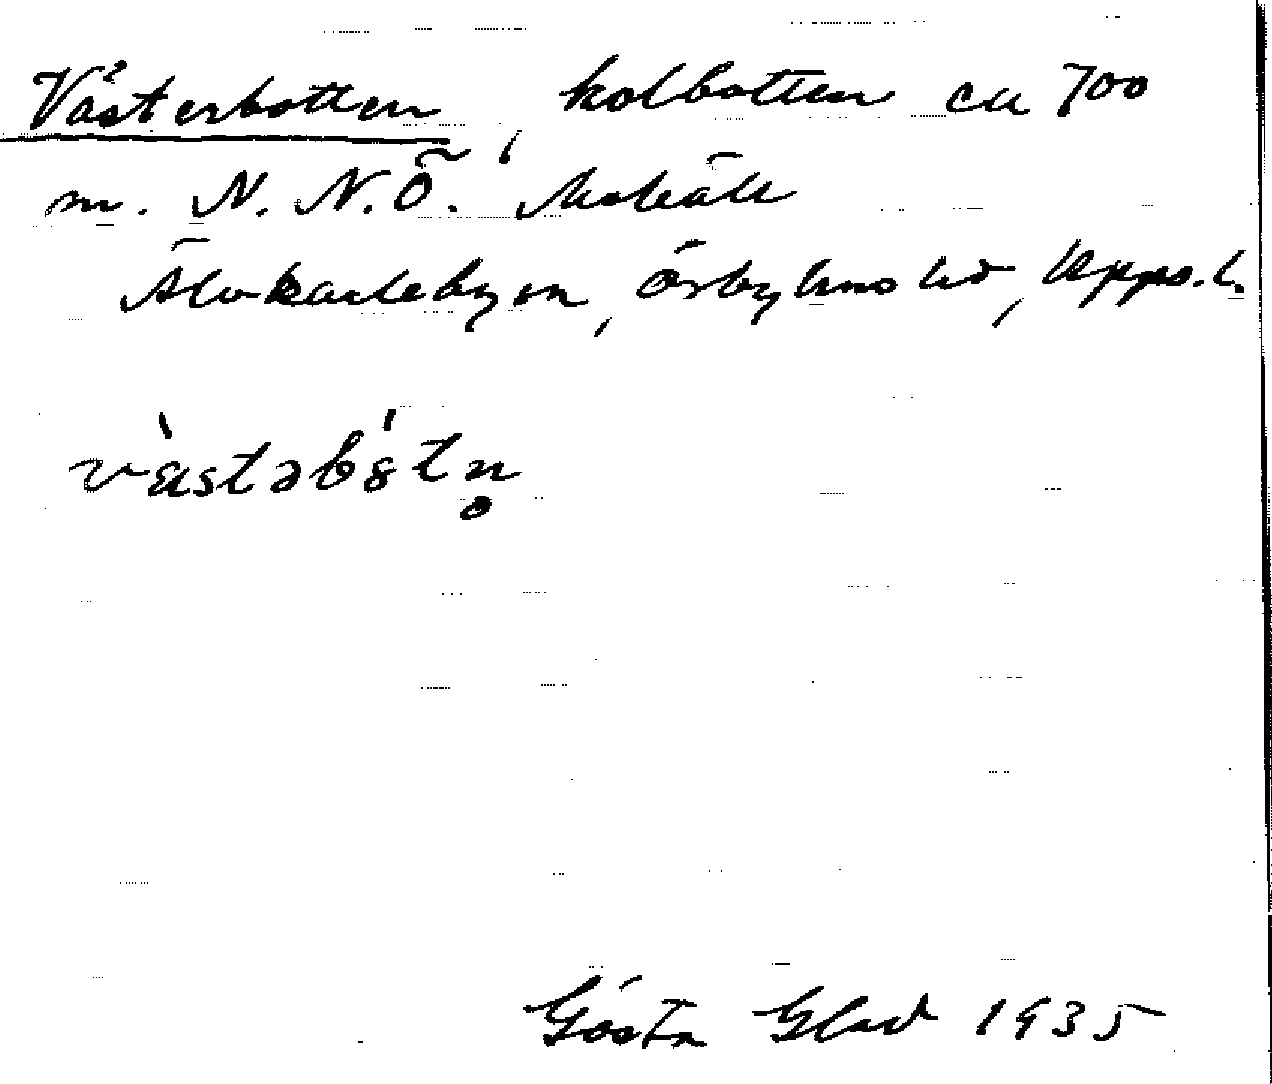 Västerbotten, kolbotten ca 700
m. N.N.Ö.
Älvkarleby sn, Örbyhus hd, Upps. l.
västəbòtn̥
Gösta Glad 1935